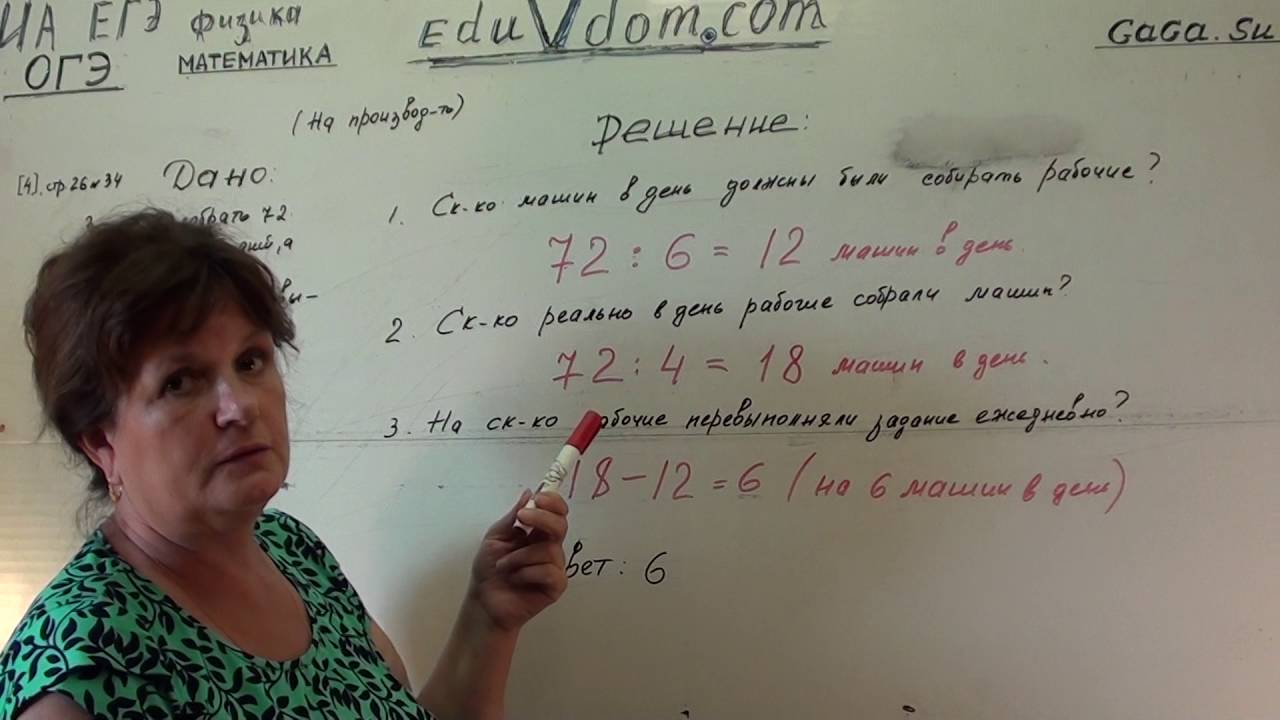 ИА ЕГЭ физика
ОГЭ
МАТЕМАТИКА
EduVdom.com
GaGa.Su
(На производ-ть)
Решение:
[4]. стр 26 № 34
Дано:
72
а
вы-
1. Ск-ко машин в день должны были собирать рабочие?
72 : 6 = 12 машин в день.
2. Ск-ко реально в день рабочие собрали машин?
72 : 4 = 18 машин в день.
3. На ск-ко рабочие перевыполняли задание ежедневно?
18 – 12 = 6 (на 6 машин в день)
вет: 6